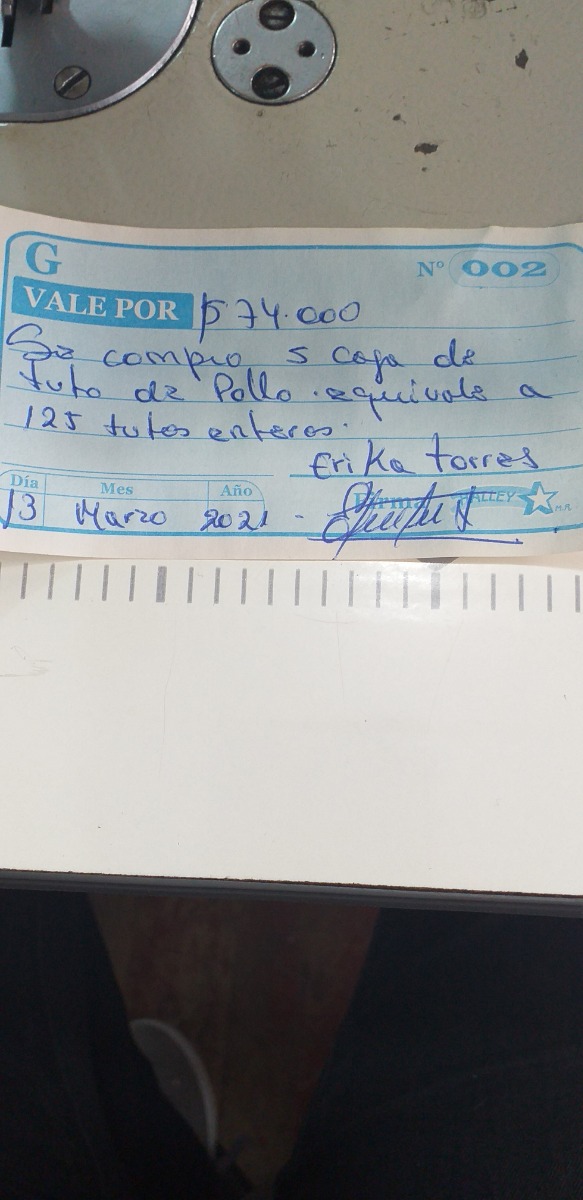 G
Nº 002
VALE POR $ 74.000
Se compro 5 caja de
tuto de Pollo. equivale a
125 tutos enteros.
Erika torres
Día Mes Año
13 Marzo 2021 -
Firma
ALLEY
M.R.